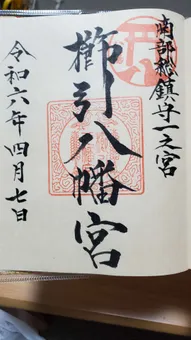 南部総鎮守一之宮
櫛引八幡宮
令和六年四月七日